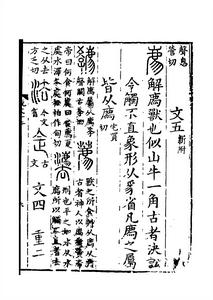 聲息營切
文五 新附
廌 解廌獸也似山牛一角古者決訟
令觸不直象形从豸省凡廌之屬
皆从廌 宅買切
解廌屬从廌孝聲闕古孝切 薦 獸之所食艸从廌从艸古者神人以廌遺黃
帝帝曰何食何處曰食薦夏處水澤冬處松柏作甸切 灋 刑也平之如水从水廌所以觸不直者去
之从去方乏切 法 今文省 佱 古文
文四 重二